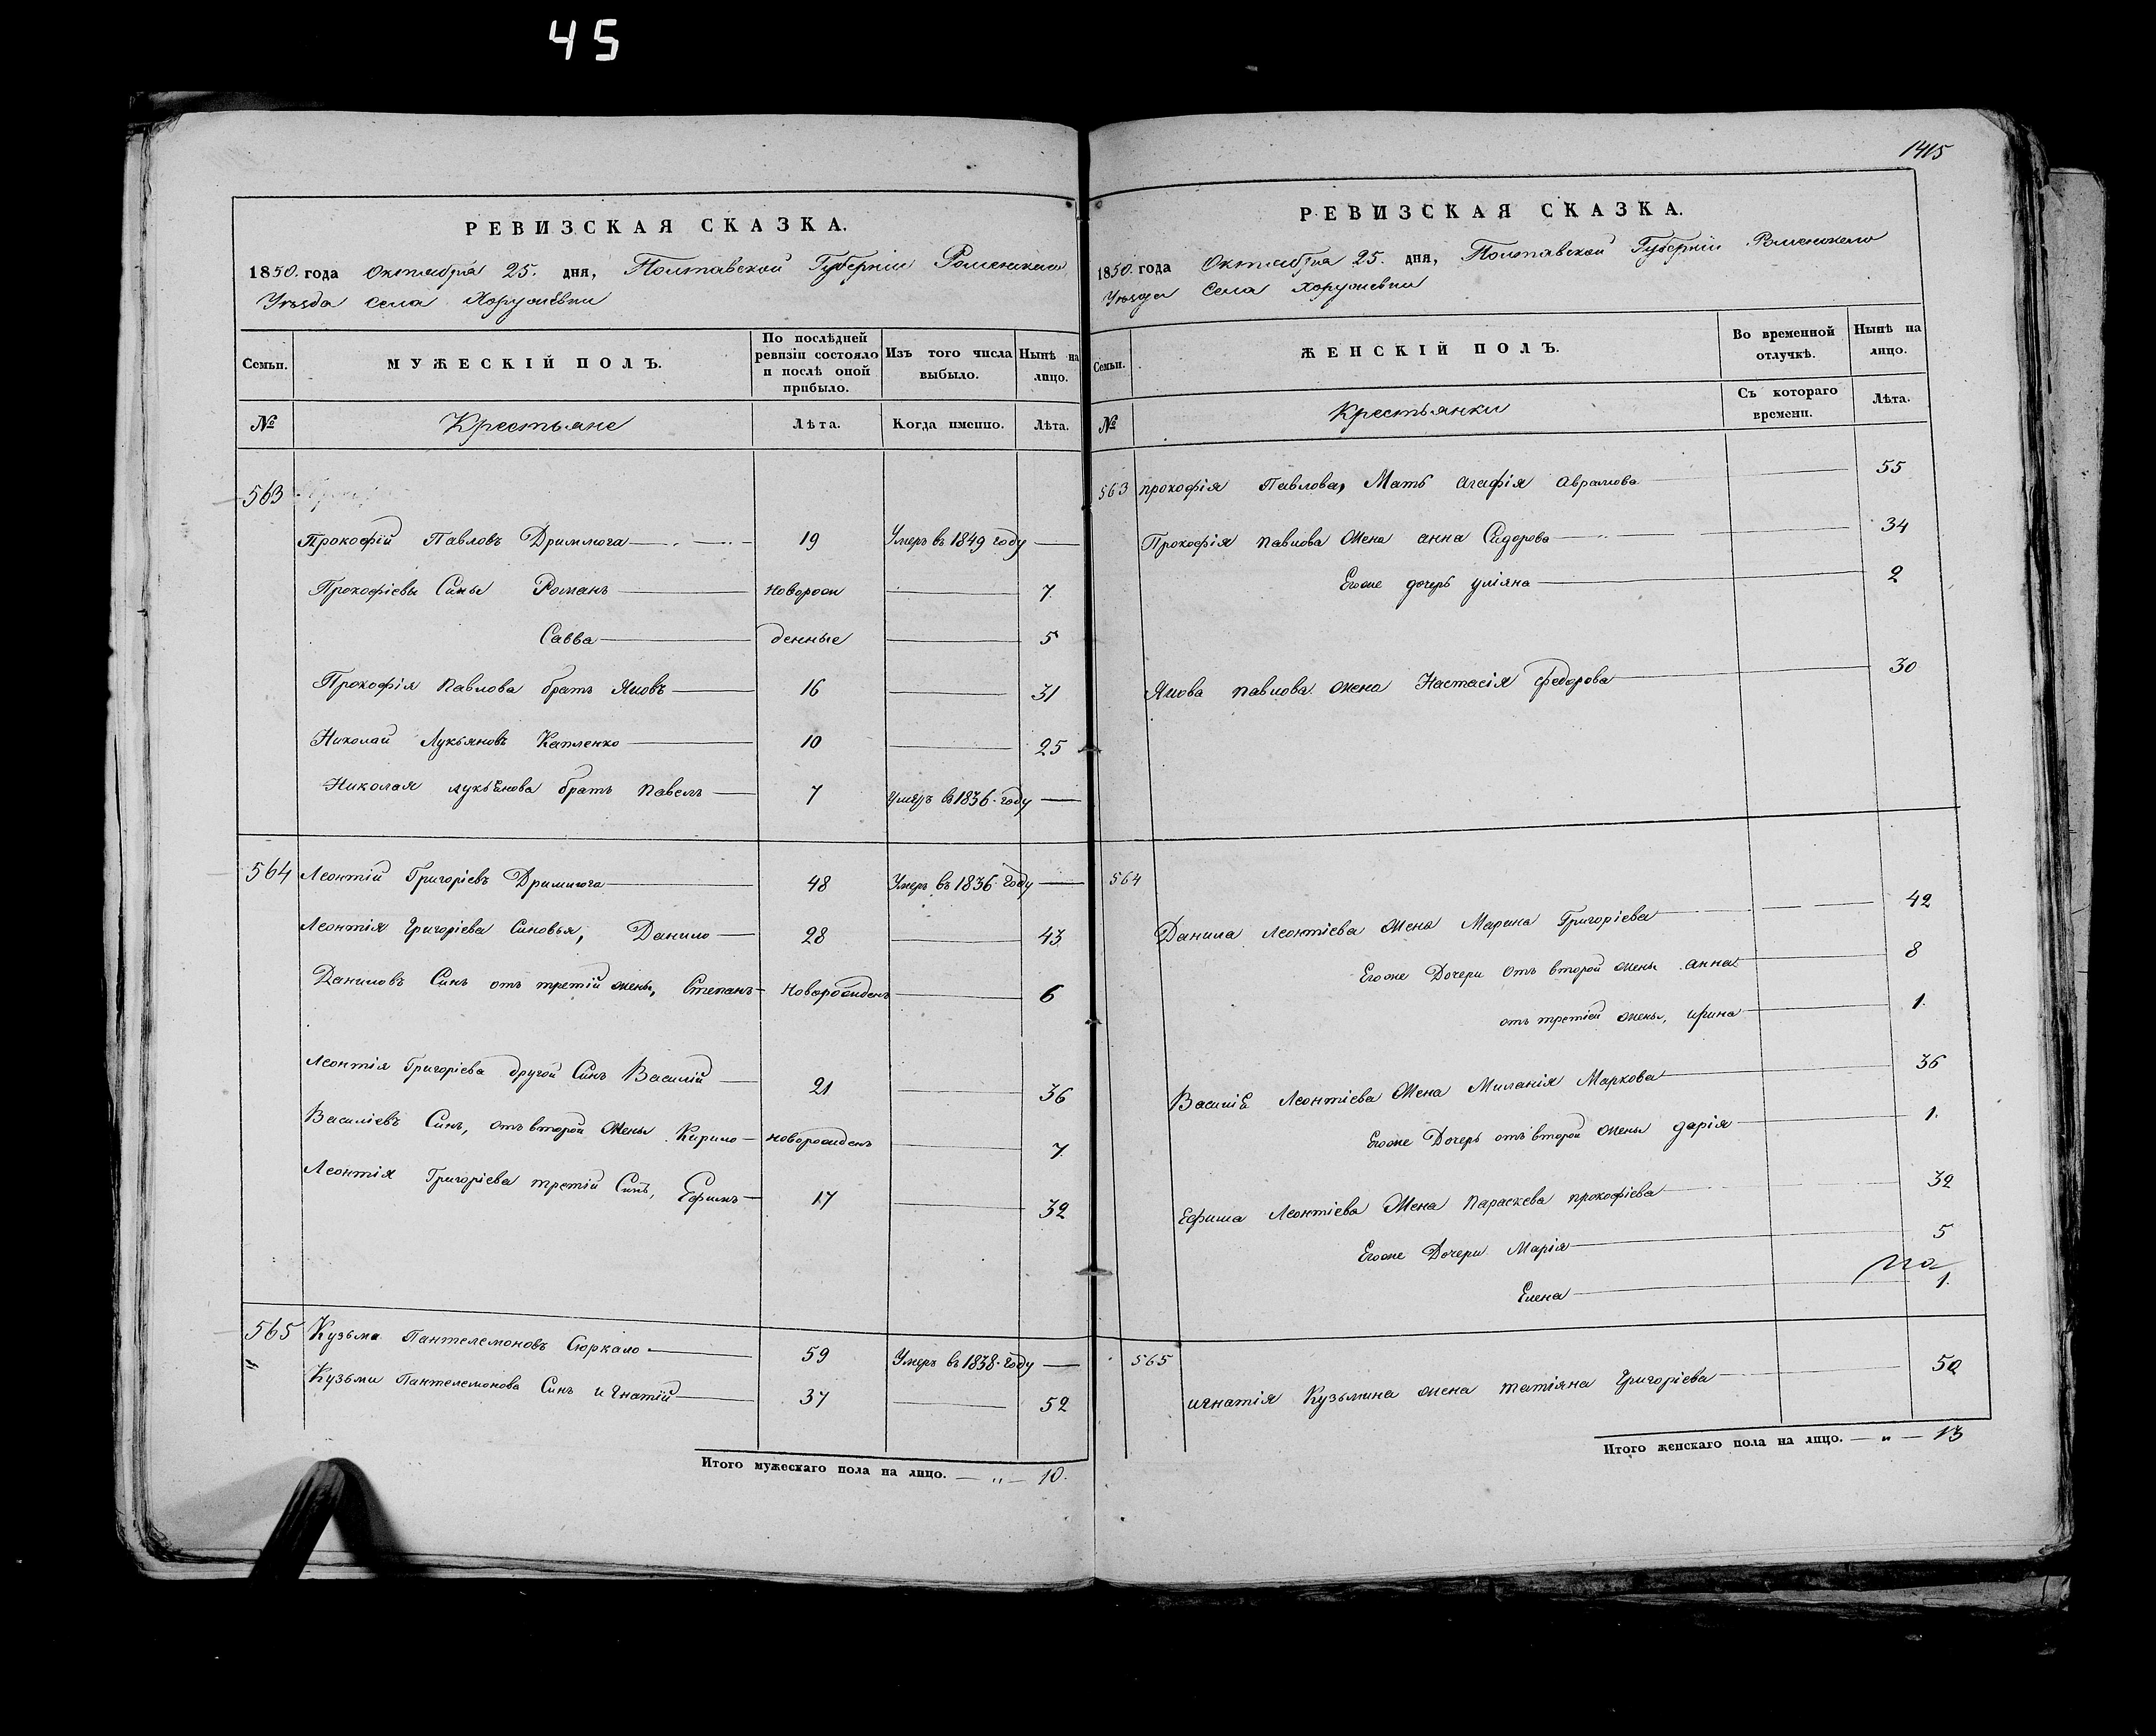 45
РЕВИЗСКАЯ СКАЗКА.
1850. года Октября 25. дня, Полтавской Губерніи Роменскаго
Уѣзда села Хоружевки
Семьи.
МУЖЕСКІЙ ПОЛЪ.
По послѣдней ревизіи состояло и послѣ оной прибыло.
Изъ того числа выбыло.
Нынѣ на лицо.
№
Крестьяне
Лѣта.
Когда именно.
Лѣта.
563
Прокофій Павловъ Дримлюга 19 Умеръ въ 1849 году
Прокофіевы Сины Романъ новорож 7
Савва денные 5
Прокофія Павлова братъ Яковъ 16 31
Николай Лукьяновъ Капленко 10 25
Николая лукьянова братъ Павелъ 7 умеръ въ 1836 году
564 Леонтій Григоріевъ Дримлюга 48 Умеръ въ 1836 году
Леонтія Григоріева Синовья, Данило 28 43
Даниловъ Синъ отъ третій жены, Степанъ новорожденъ 6
Леонтія Григоріева другой Синъ Василій 21 36
Василіевъ Синъ, отъ второй жены Кирило новорожденъ 7
Леонтія Григоріева третій Синъ, Ефимъ 17 32
565 Кузьма Пантелемоновъ Сюркало 59 Умеръ въ 1838 году
Кузьми Пантелемонова Синъ игнатій 37 52
Итого мужескаго пола на лицо. — „ — 10.
1415
РЕВИЗСКАЯ СКАЗКА.
1850. года Октября 25. дня, Полтавской Губерніи Роменскаго
Уѣзда Села Хоружевки
Семьи.
ЖЕНСКІЙ ПОЛЪ.
Во временной отлучкѣ.
Нынѣ на лицо.
№
Крестьянки
Съ котораго времени.
Лѣта.
563 прокофія Павлова, Мать Агафія Аврамова 55
Прокофія павлова жена анна Сидорова 34
Егоже дочерь уліяна 2
Якова павлова жена Настасія федорова 30
564
Данила Леонтіева жена Марина Григоріева 42
Егоже Дочери отъ второй жены анна 8
отъ третіей жены, ирина 1.
Василія Леонтіева жена Миланія Маркова 36
Егоже Дочерь отъ второй жены дарія 1.
Ефима Леонтіева Жена параскева прокофіева 32
Егоже Дочери Марія 5
Елена 1.
565
игнатія Кузьмина жена татіяна Григоріева 50
Итого женскаго пола на лицо. — „ — 13